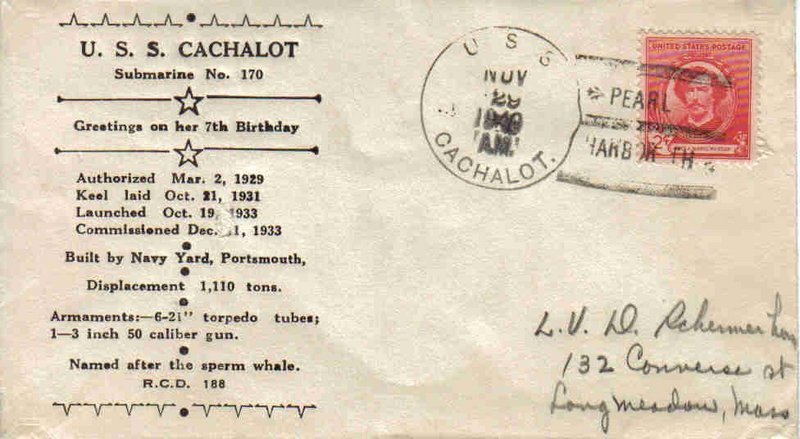 U. S. S. CACHALOT
Submarine No. 170
Greetings on her 7th Birthday
Authorized Mar. 2, 1929
Keel laid Oct. 21, 1931
Launched Oct. 19, 1933
Commissioned Dec. 1, 1933
Built by Navy Yard, Portsmouth,
Displacement 1,110 tons.
Armaments:—6-21" torpedo tubes;
1—3 inch 50 caliber gun.
Named after the sperm whale.
R.C.D. 188
U S S
NOV
29
1940
A.M.
CACHALOT.
PEARL
HARBOR TH
UNITED STATES POSTAGE
2¢
L. V. D. Schermerhorn
132 Converse st
Longmeadow, Mass